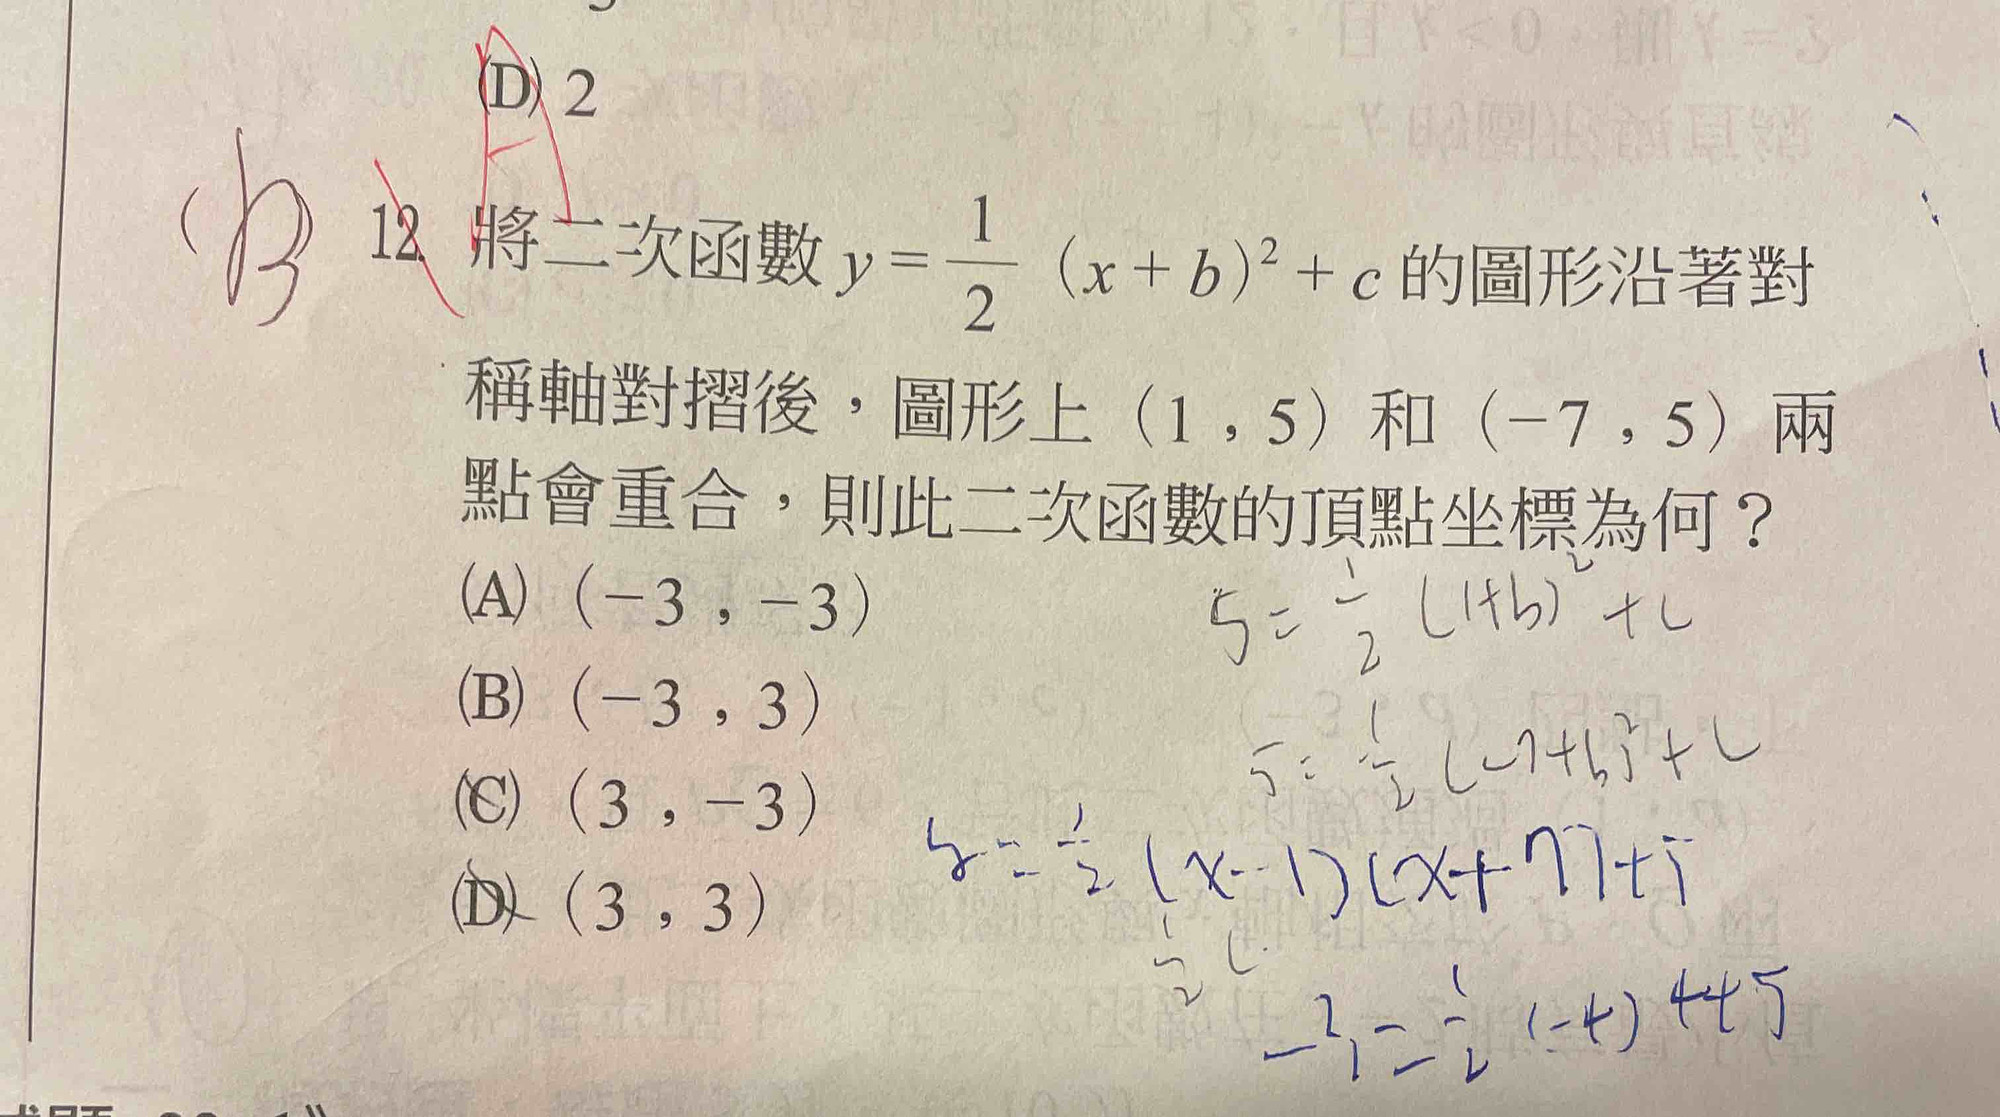 (D) 2
A
(B)
12. 將二次函數 y = 1/2 (x + b)² + c 的圖形沿著對
稱軸對摺後，圖形上（1，5）和（−7，5）兩
點會重合，則此二次函數的頂點坐標為何？
(A)（−3，−3）
5 = 1/2 (1+b)² + c
(B)（−3，3）
5 = 1/2 (-7+b)² + c
(C)（3，−3）
y = 1/2 (x-1)(x+7)+5
(D)（3，3）
1/2 (
-3 = 1/2 (-4) 4+5